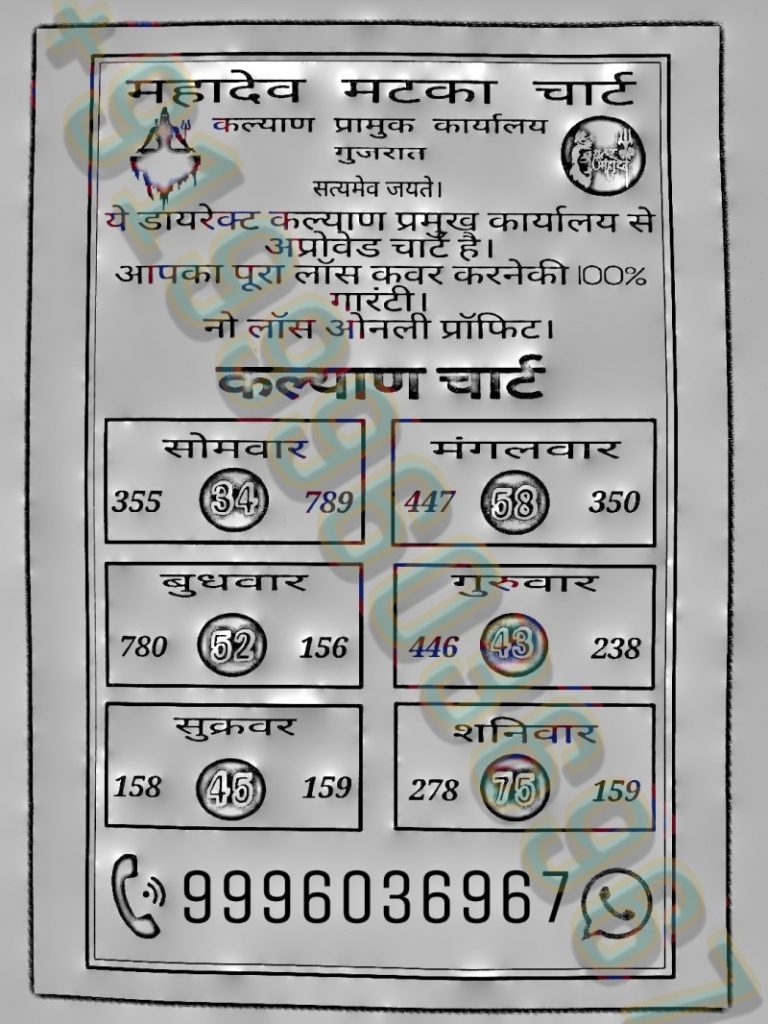 महादेव मटका चार्ट
कल्याण प्रामुक कार्यालय
गुजरात
सत्यमेव जयते।
ये डायरेक्ट कल्याण प्रमुख कार्यालय से
अप्रोवेड चार्ट है।
आपका पूरा लॉस कवर करनेकी 100%
गारंटी।
नो लॉस ओनली प्रॉफिट।
कल्याण चार्ट
सोमवार मंगलवार
355 34 789 447 58 350
बुधवार गुरुवार
780 52 156 446 43 238
सुक्रवर शनिवार
158 45 159 278 75 159
9996036967
+919996036967